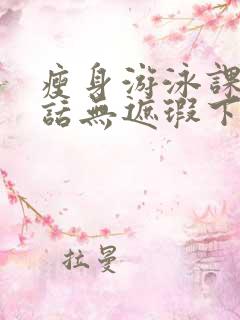 瘦身游泳課
話無遮瑕下
拉曼